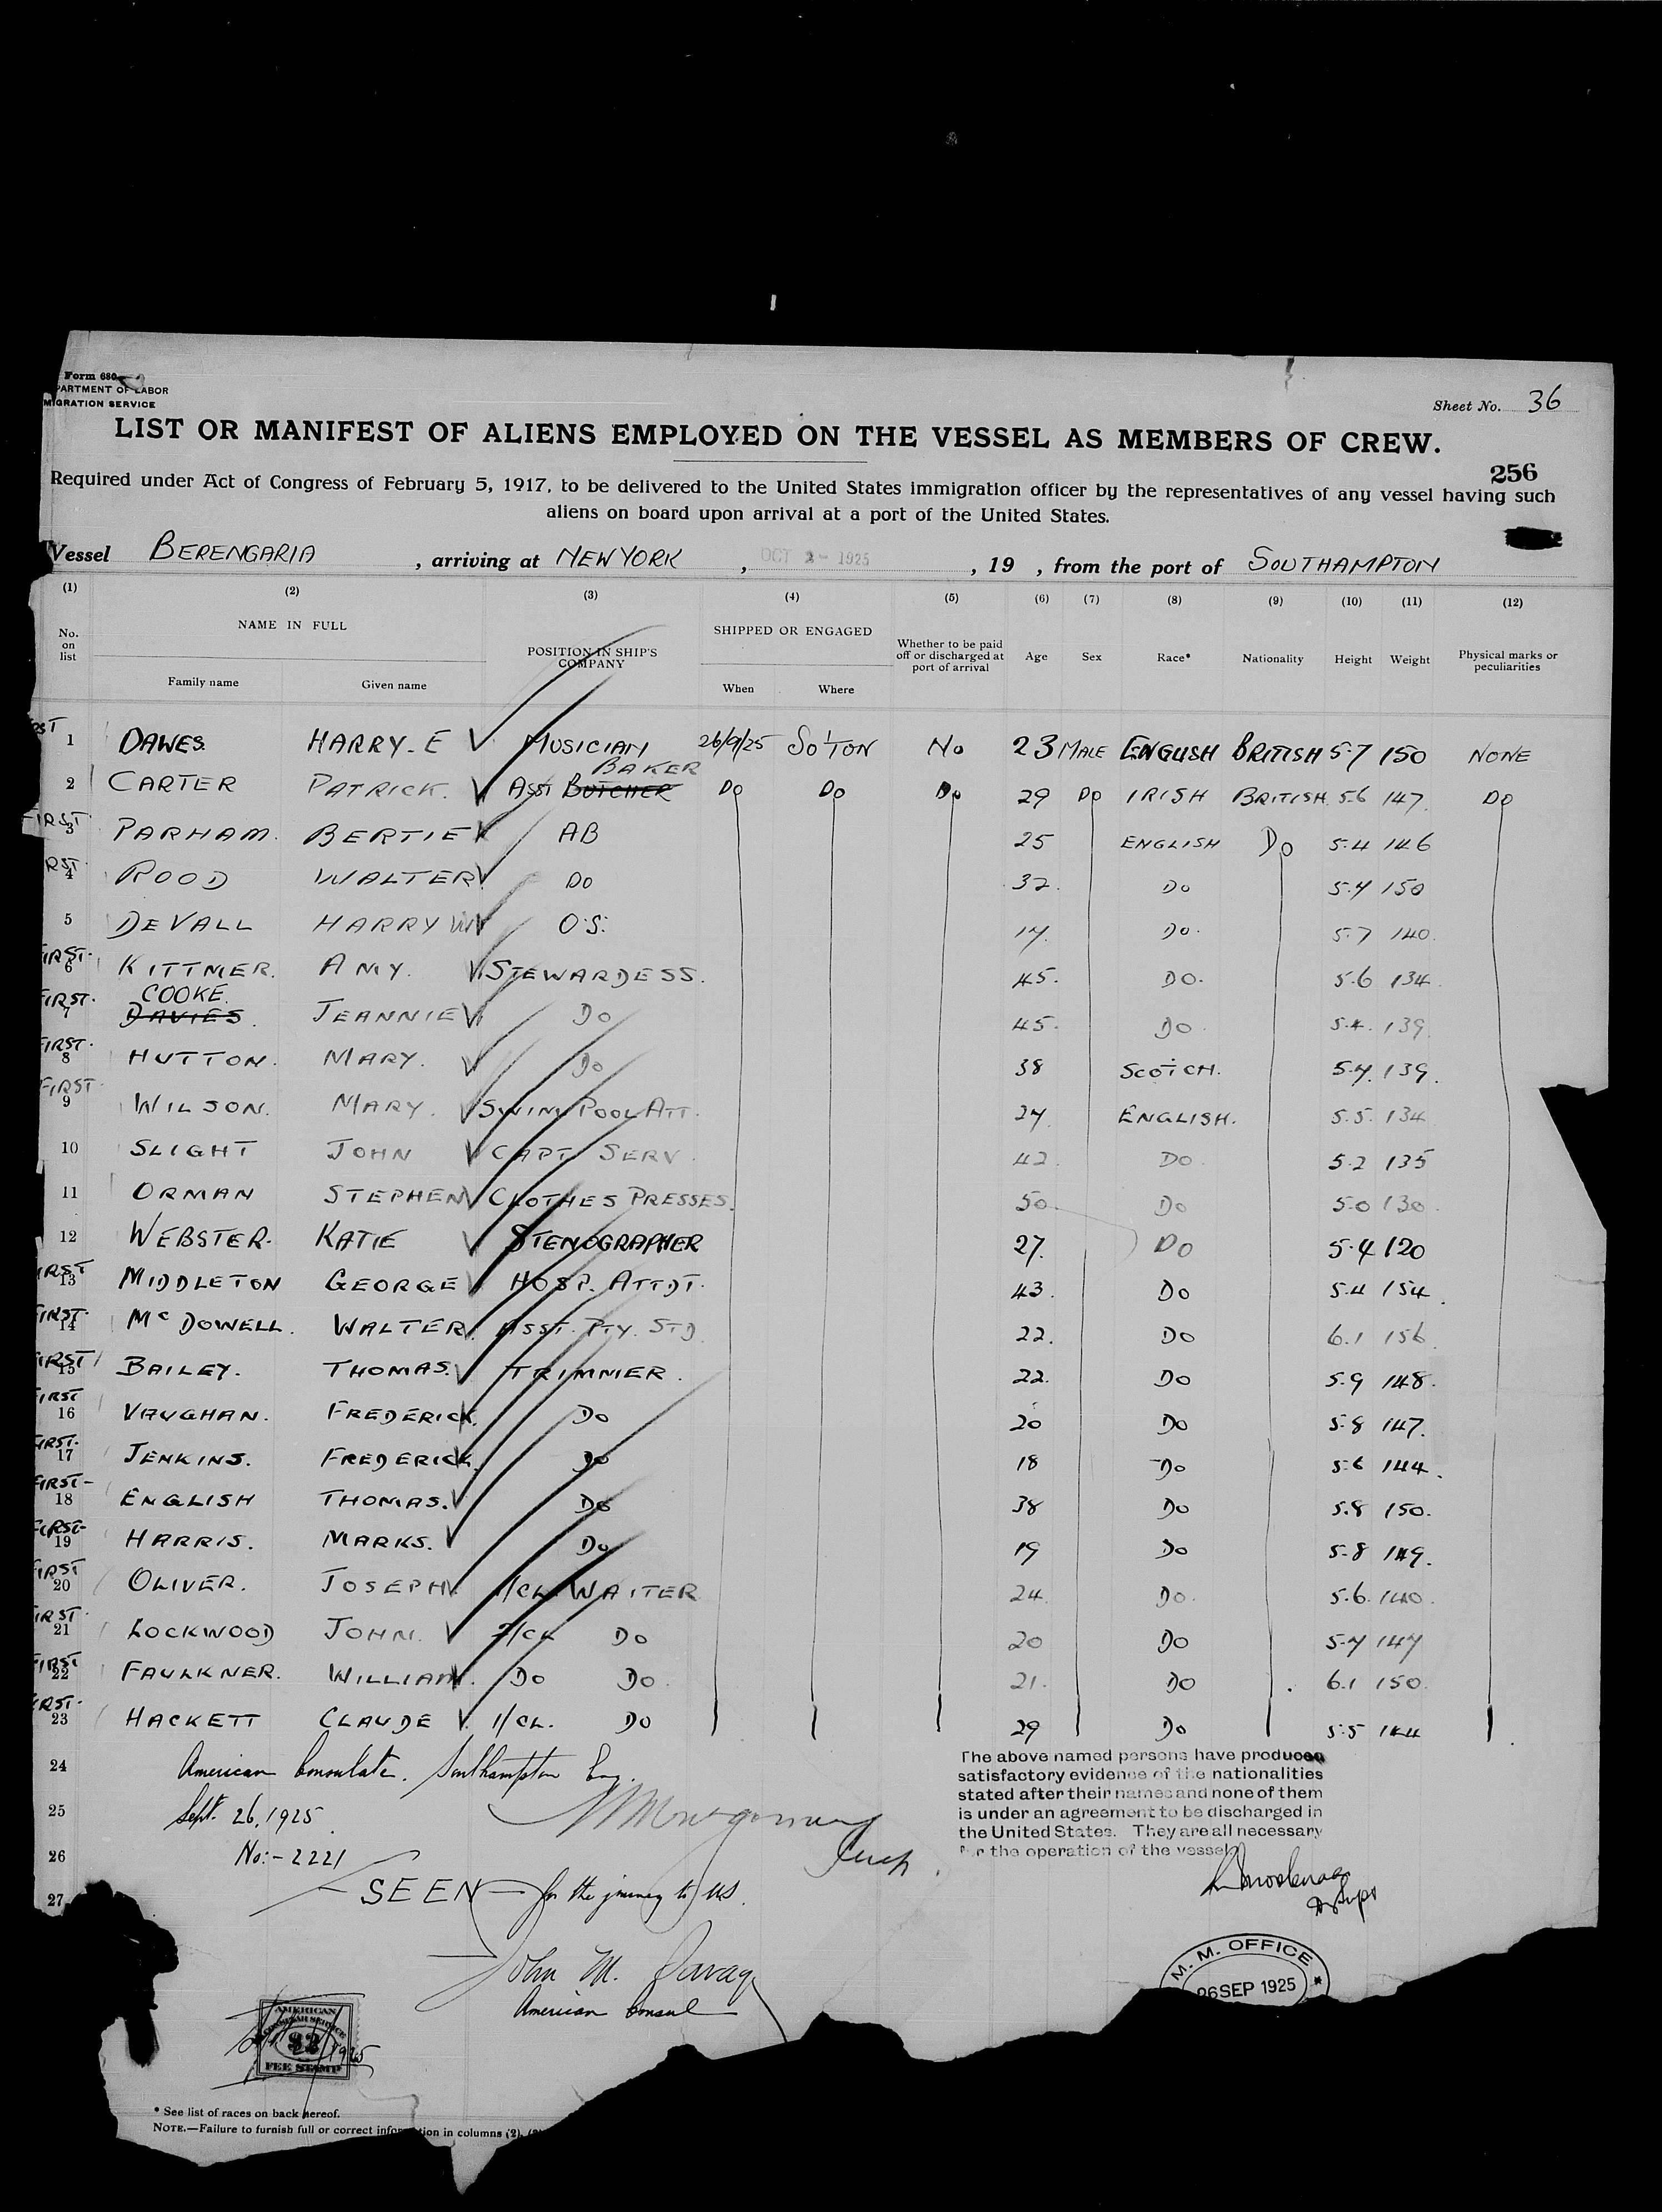 Form 680
PARTMENT OF LABOR
MIGRATION SERVICE
Sheet No. 36
LIST OR MANIFEST OF ALIENS EMPLOYED ON THE VESSEL AS MEMBERS OF CREW.
256
Required under Act of Congress of February 5, 1917, to be delivered to the United States immigration officer by the representatives of any vessel having such
aliens on board upon arrival at a port of the United States.
Vessel BERENGARIA , arriving at NEW YORK , OCT 2- 1925 , 19 , from the port of SOUTHAMPTON
(1) (2) (3) (4) (5) (6) (7) (8) (9) (10) (11) (12)
No. on list NAME IN FULL Family name Given name POSITION IN SHIP'S COMPANY SHIPPED OR ENGAGED When Where Whether to be paid off or discharged at port of arrival Age Sex Race* Nationality Height Weight Physical marks or peculiarities
RST 1 DAWES. HARRY. E MUSICIAN 26/9/25 SO'TON No 23 MALE ENGLISH BRITISH 5-7 150 NONE
BAKER
2 CARTER PATRICK. ASST BUTCHER DO DO DO 29 DO IRISH BRITISH 5-6 147. DO
FIRST 3 PARHAM. BERTIE AB 25 ENGLISH DO 5-4 146
RST. 4 ROOD WALTER DO 32. DO 5.7 150
5 DEVALL HARRY W O.S. 17. DO. 5.7 140.
FIRST. 6 KITTNER. AMY. STEWARDESS. 45. DO. 5.6 134.
COOKE.
FIRST. 7 DAVIES. JEANNIE DO 45. DO. 5.4. 139.
FIRST. 8 HUTTON. MARY. DO 38 SCOTCH. 5.7. 139.
FIRST 9 WILSON. MARY. SWIM POOL ATT. 27. ENGLISH. 5.5. 134
10 SLIGHT JOHN CAPT SERV. 42. DO. 5.2 135
11 ORMAN STEPHEN CLOTHES PRESSES. 50. DO 5.0 130.
12 WEBSTER. KATIE STENOGRAPHER 27. DO 5.4 120
IRST 13 MIDDLETON GEORGE HOSP. ATTDT. 43. DO 5.4 154.
FIRST. 14 McDOWELL. WALTER. ASST. PTY. STD. 22. DO 6.1 156.
FIRST 15 BAILEY. THOMAS. TRIMMER. 22. DO 5.9 148.
FIRST 16 VAUGHAN. FREDERICK. DO 20 DO 5.8 147.
FIRST. 17 JENKINS. FREDERICK. DO 18 DO 5-6 144.
FIRST- 18 ENGLISH THOMAS. DO 38 DO 5.8 150.
FIRST- 19 HARRIS. MARKS. DO 19 DO 5-8 149.
FIRST 20 OLIVER. JOSEPH. 1/CL. WAITER 24. DO. 5.6. 140.
IRST. 21 LOCKWOOD JOHN. 2/CL DO 20 DO 5-7 147
FIRST 22 FAULKNER. WILLIAM. DO DO. 21. DO 6.1 150.
IRST. 23 HACKETT CLAUDE 1/CL. DO 29 DO 5.5 144
24 American Consulate. Southampton Eng.
25 Sept. 26, 1925
26 No:- 2221
27 SEEN for the journey to U.S.
The above named persons have produced
satisfactory evidence of the nationalities
stated after their names and none of them
is under an agreement to be discharged in
the United States. They are all necessary
for the operation of the vessel
John M. Savage
American Consul
M. M. OFFICE
26 SEP 1925
AMERICAN
CONSULAR SERVICE
$2
FEE STAMP
1925
* See list of races on back hereof.
NOTE.—Failure to furnish full or correct information in columns (2),